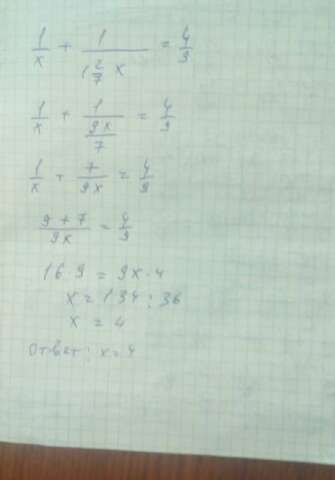 1/x + 1/(1 2/7 x) = 4/9
1/x + 1/(9x/7) = 4/9
1/x + 7/9x = 4/9
(9+7)/9x = 4/9
16·9 = 9x·4
x = 134 : 36
x = 4
Ответ: x=4